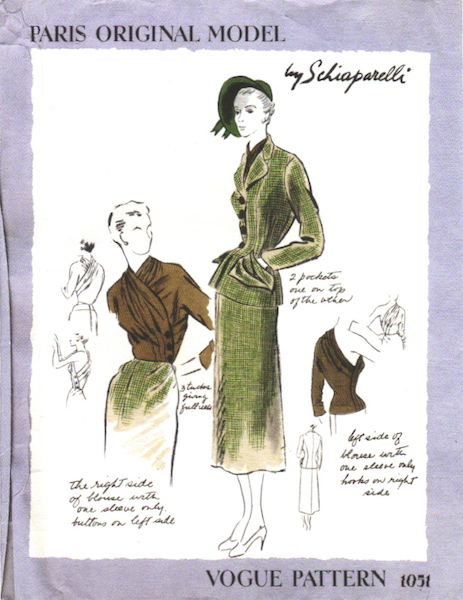 PARIS ORIGINAL MODEL
by Schiaparelli
2 pockets
one on top
of the other
3 tucks
giving
fullness
the right side
of blouse with
one sleeve only
buttons on left side
left side of
blouse with
one sleeve only
hooks on right
side
VOGUE PATTERN 1051